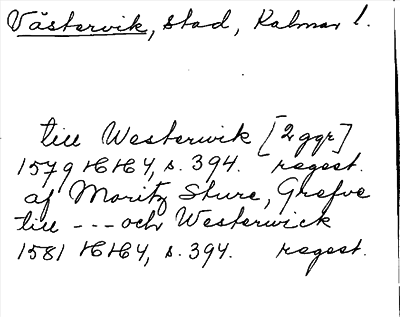 Västervik, stad, Kalmar l.
till Westerwik [2 ggr]
1579 HH4, s. 394. regest.
af Moritz Sture, Grefve
till --- och Westerwick
1581 HH4, s. 394. regest.